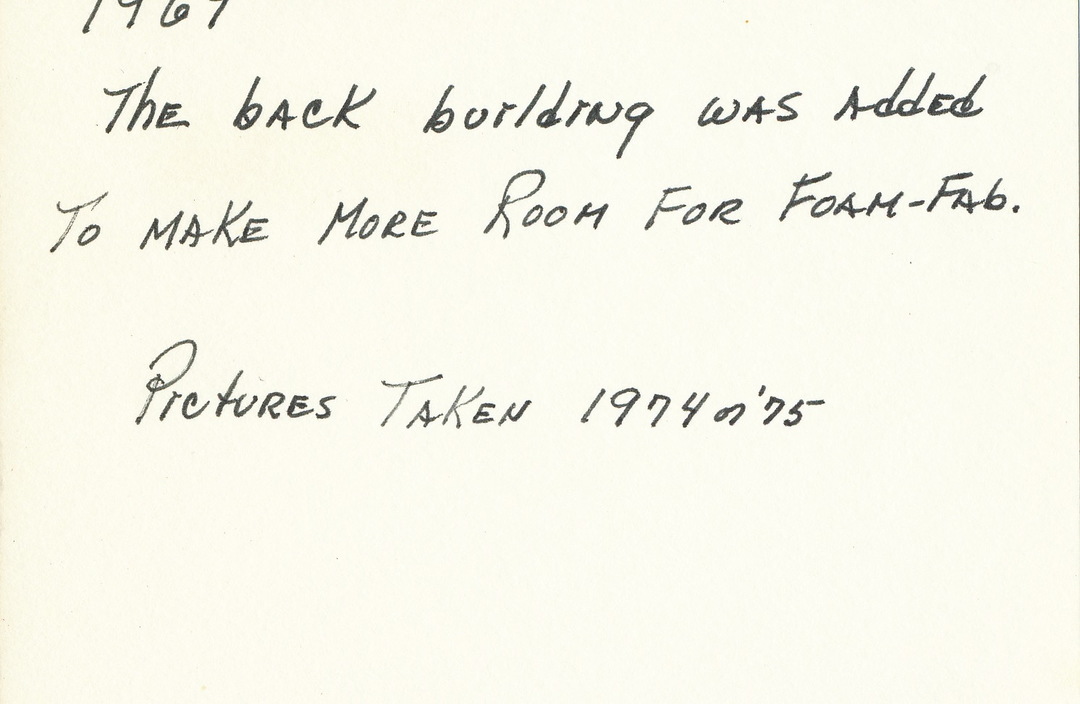 The back building was added
To make more Room for Foam-Fab.
Pictures Taken 1974 or '75